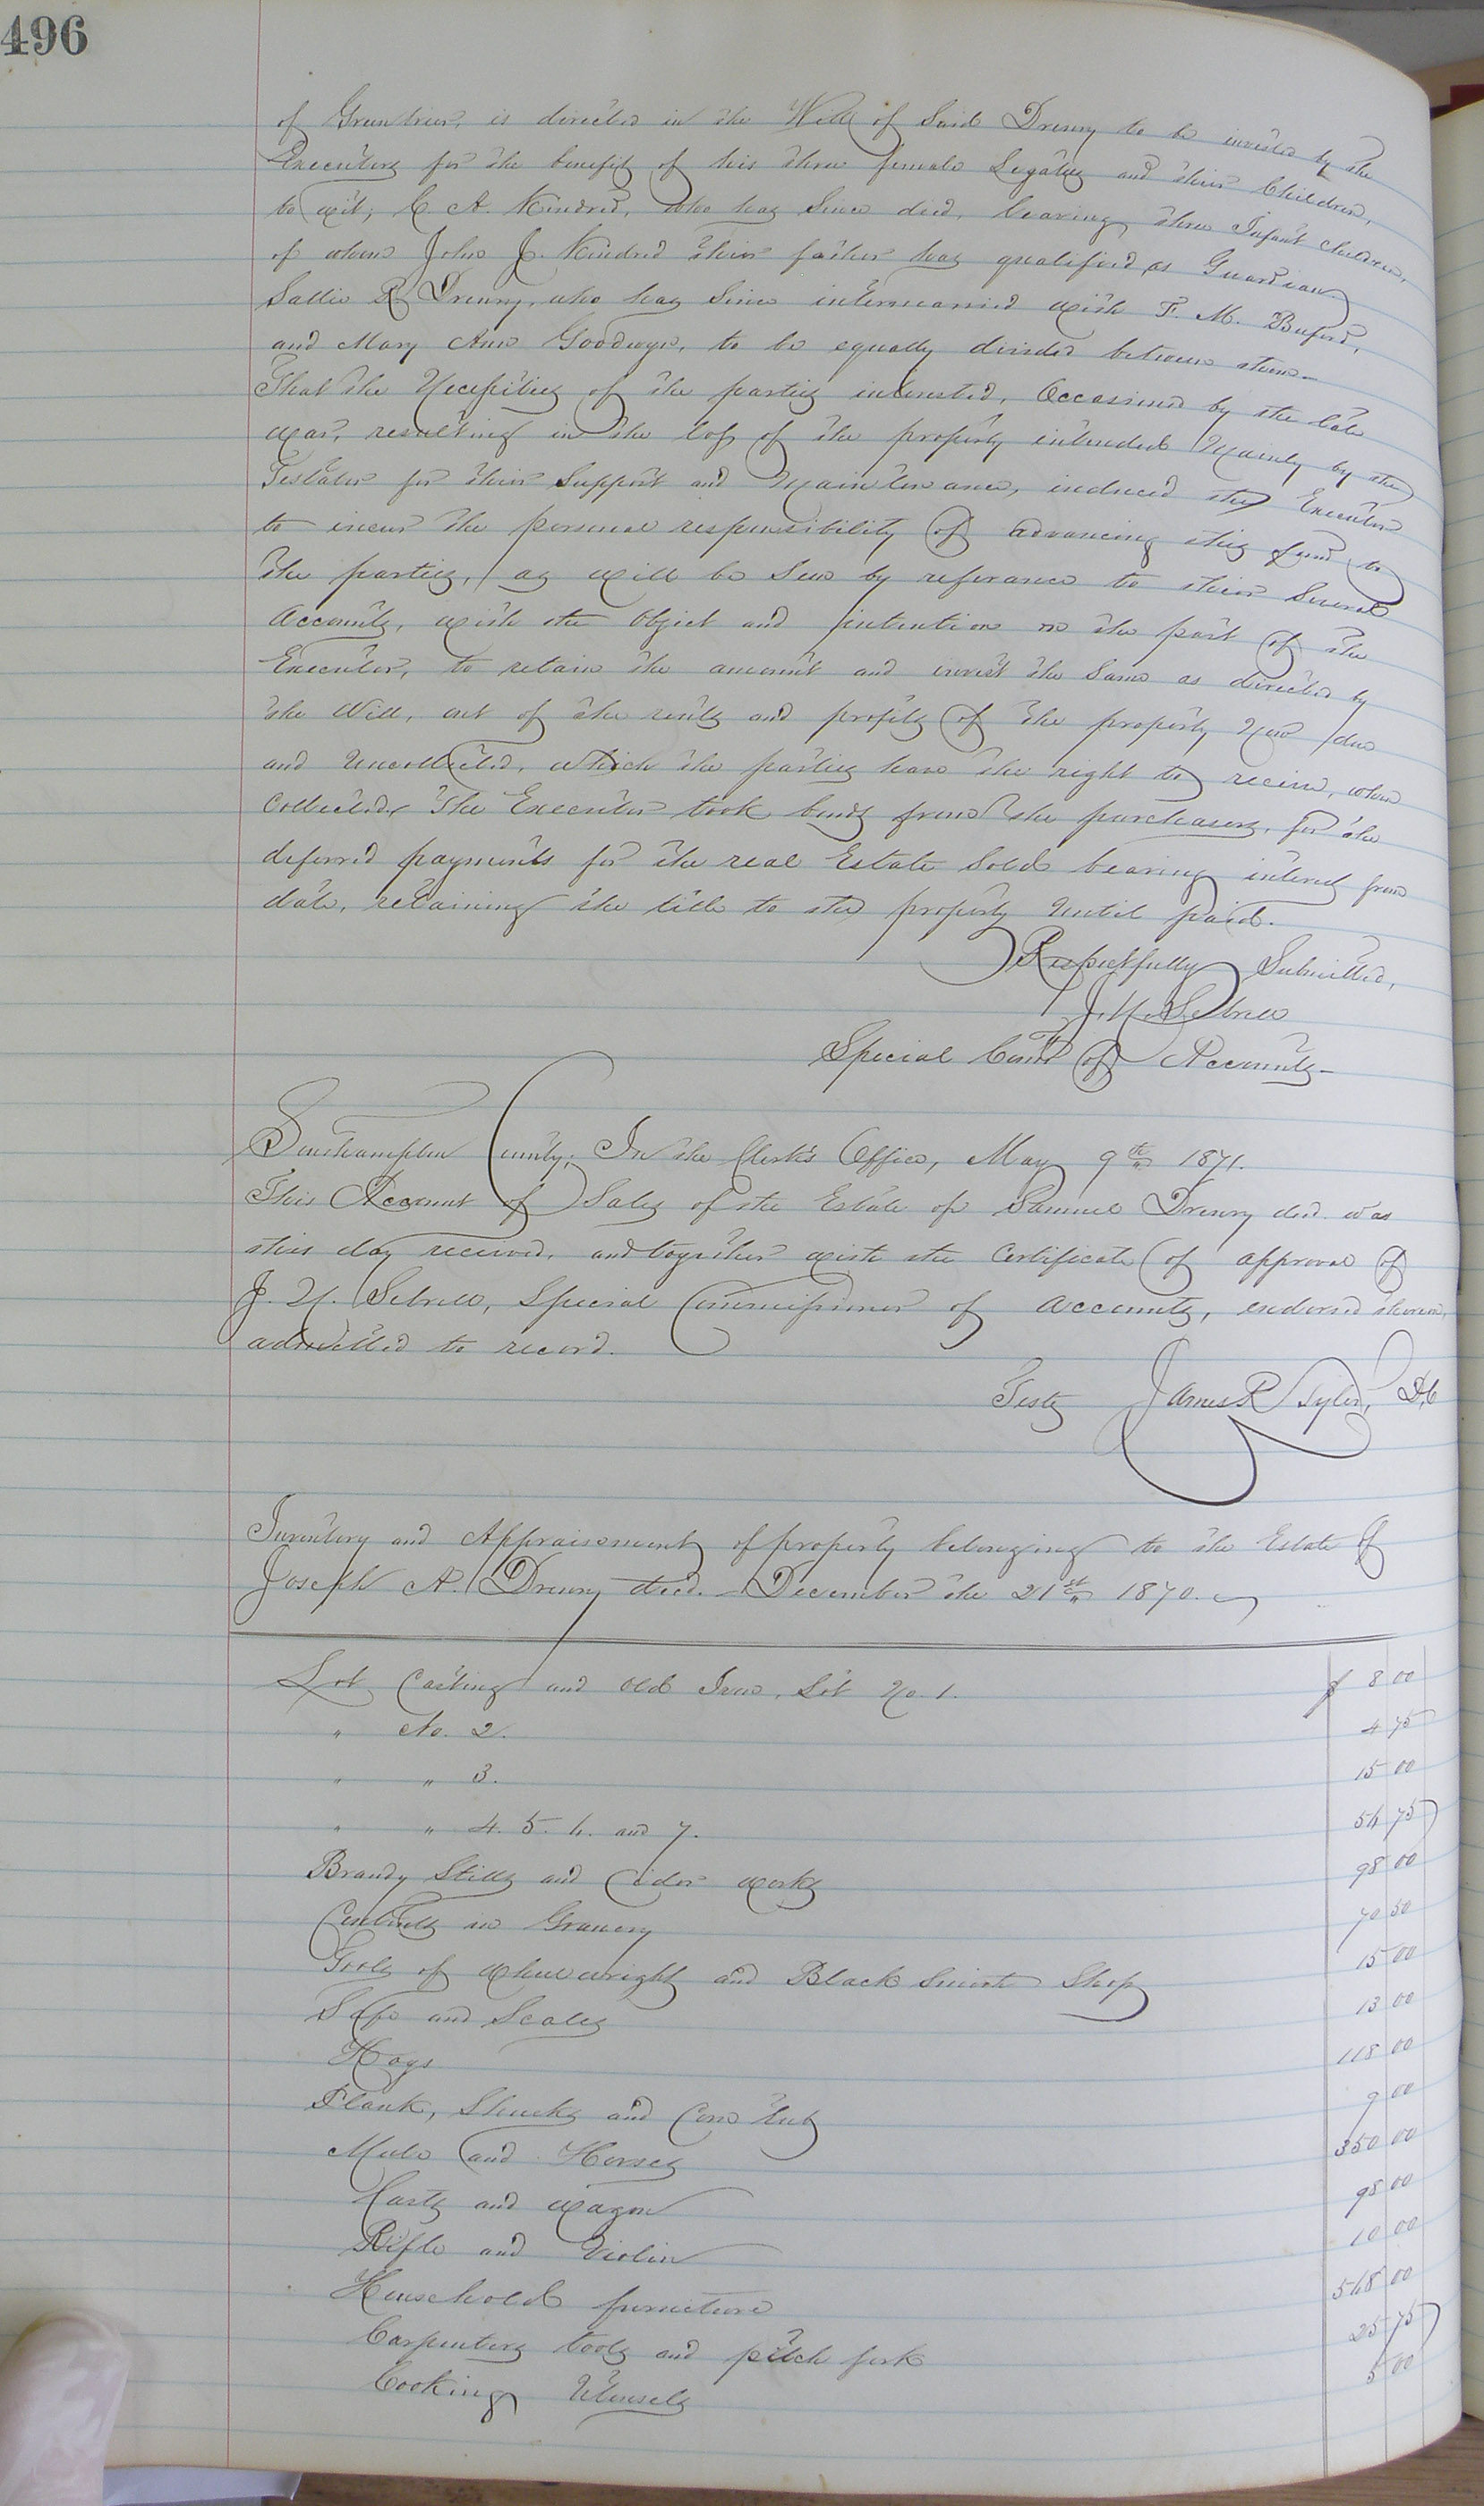 496
of Greensvies, is directed in the Will of Said Drewry to be invested by the
Executors for the benefit of his three female Legatees and their Children,
to wit; C A. Kindred, who has Since died, leaving three Infant children,
of whom John J. Kindred their father has qualified as Guardian
Sallie R Drewry, who has Since intermarried with F. M. Buford,
and Mary Ann Goodwyn, to be equally divided between them
That the Necessities of the parties interested, Occasioned by the late
war, resulting in the loss of the property intended Mainly by the
Testator for their Support and Maintenance, induced the Executor
to incur the personal responsibility of advancing this fund to
the parties, as will be Seen by reference to their Several
Accounts, with the Object and intention on the part of the
Executor, to retain the amount and invest the Same as directed by
the Will, out of the rents and profits of the property Now due
and Uncollected, which the parties have the right to receive, when
Collected. The Executor took bonds from the purchasers, for the
deferred payments for the real Estate Sold bearing interest from
date, retaining the title to the property Until paid.
Respectfully Submitted,
J. N. Sebrell
Special Comr of Accounts-
Southampton County; In the Clerk's Office, May 9th 1871.
This Account of Sales of the Estate of Samuel Drewry decd. was
this day received, and together with the Certificate of approval of
J. N. Sebrell, Special Commissioner of Accounts, endorsed thereon,
admitted to record.
Teste James R Tyler, D,C
Inventory and Appraisement of property belonging to the Estate of
Joseph A. Drewry decd. December the 21st 1870.
Lot Casting and Old Iron, Lot No. 1. $ 8 00
" No. 2. 4 75
" " 3. 15 00
" " 4. 5. 6. and 7. 56 75
Brandy Stills and Cider works 98 00
Contents in Granery 70 50
Tools of wheelwright and Black Smith Shop 15 00
Safe and Scales 13 00
Hogs 118 00
Plank, Shucks and Corn tub 9 00
Mule and Horses 350 00
Carts and Wagon 98 00
Rifle and Violin 10 00
Household furniture 568 00
Carpenters tools and pitch fork 25 75
Cooking Utensels 5 00